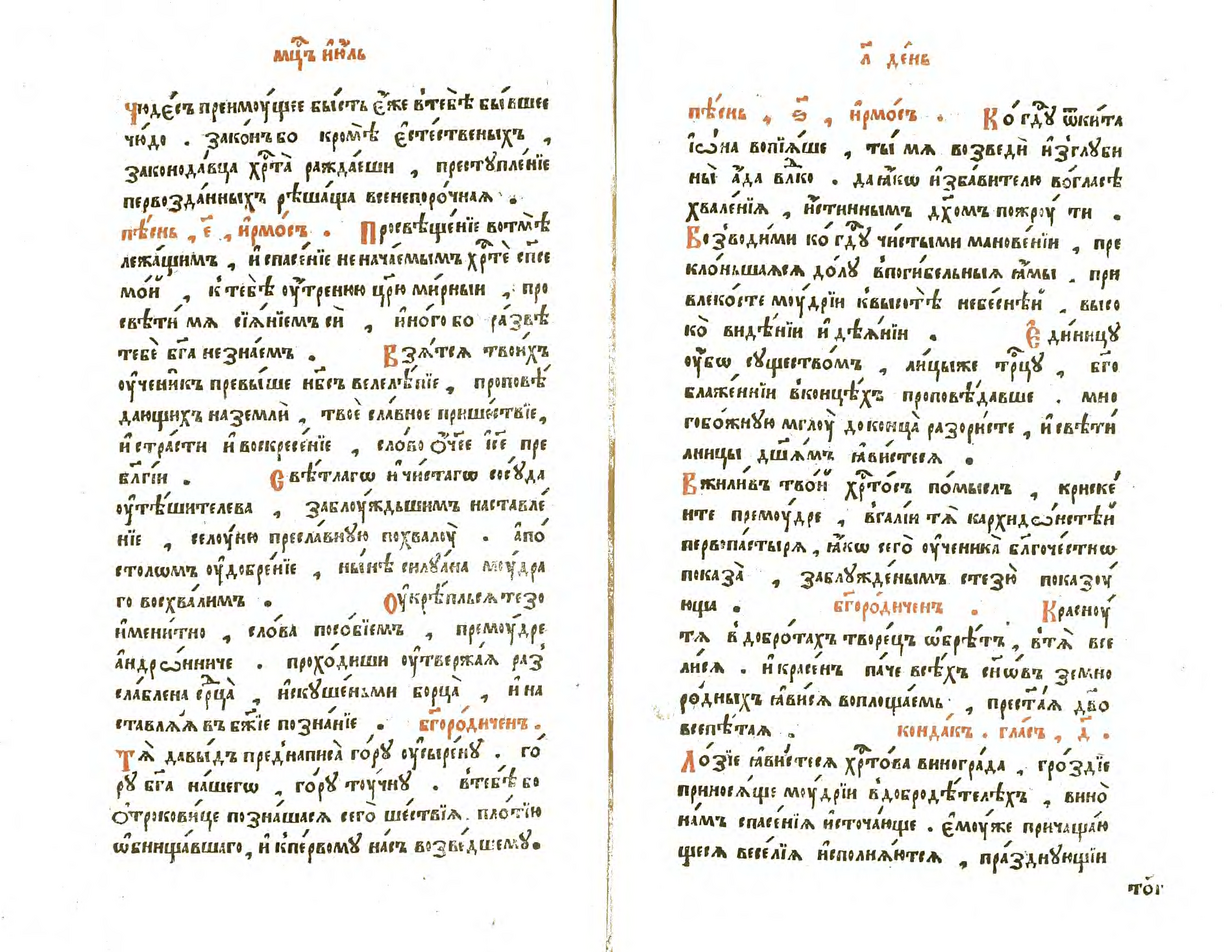 мц҃ъ ию҃ль
Чюде́съ преимоу́щее бы́сть є҆́же в̾тебѣ̀ бы́вшее
чю́до . зако́нъ бо кромѣ̀ є҆сте́ственыхъ ,
законода́вца хр҃та̀ ражда́еши , престꙋпле́нїе
первозда́нныхъ рѣша́ща всенепоро́чная .
пѣ́снь , є҃ , і҆рмо́съ . Просвѣще́нїе вотмѣ̀
лежа́щимъ , и҆ спасе́нїе неначае́мымъ хр҃тѐ сп҃се
мо́й , к̾тебѣ̀ оу҆́тренюю цр҃ю ми́рныи , про
свѣти́ мѧ сїѧ́нїемъ сѝ , и҆но́го бо ра́звѣ
тебѐ бг҃а не зна́емъ . Взѧ́тсѧ твои́хъ
оу҆чени́къ превы́ше нб҃съ велелѣ́пїе , проповѣ́
дающихъ на землѝ , твоѐ сла́вное прише́ствїе,
и҆ стра́сти и҆ воскресе́нїе , сло́во ѻ҆́ч҃ее і҆с҃е пре
бл҃гі́и . Свѣ́тлагѡ и҆ чи́стагѡ сосꙋ́да
оу҆тѣ́шителева , заблоу́ждьшимъ наставле́
нїе , селоу́ню пресла́внꙋю похвалоу̀ . а҆по́
столѡмъ оу҆добре́нїе , ны́нѣ силꙋа́на моу́дра
го восхва́лимъ . Оу҆крѣ́пльсѧ тезо
имени́тно , сло́ва посо́бїемъ , премоу́дре
а҆ндро́нниче . проходи́ши оу҆твержа́ѧ раз̾
сла́блена ср҃ца̀ , и҆скꙋше́ньми борца̀ , и҆ на
ставлѧ́ѧ въ бж҃їе позна́нїе . бг҃оро́диченъ .
Тѧ̀ давы́дъ преднаписа̀ го́рꙋ оу҆сыре́нꙋ . го́
рꙋ бг҃а на́шегѡ , го́рꙋ тоу́чнꙋ . в̾тебѣ́ бо
ѻ҆трокови́це позна́шасѧ сего̀ ше́ствїѧ . пло́тїю
ѡ҆бнища́вшаго, и҆ к̾пе́рвомꙋ на́съ возве́дшемꙋ.
л҃ де́нь
пѣ́снь , ѕ҃ , і҆рмо́съ . Ко́ гд҃ꙋ ѿкита
і҆ѡ́на вопїѧ́ше , ты́ мѧ возведѝ и҆з̾глꙋби
ны̀ а҆́да вл҃ко . да ꙗ҆́кѡ и҆зба́вителю во́гласѣ
хвале́нїѧ , и҆́стиннымъ дх҃омъ пожроу́ ти .
Возводи́ми ко́ гд҃ꙋ чи́стыми манове́нїи , пре
кло́ньшаѧсѧ до́лꙋ в̾поги́бельныѧ ꙗ҆́мы . при
влеко́сте моу́дрїи к̾высотѣ̀ небе́снѣй , высо
ко̀ видѣ́нїи и҆ дѣѧ́нїи . Є҆дини́цꙋ
оу҆́бѡ сꙋщество́мъ , ли́цыже тр҃цꙋ , бг҃о
блаже́ннїи в̾конце́хъ проповѣ́давше . мно
гобо́жнꙋю мглоу̀ до конца̀ разори́сте , и҆ свѣти́
лницы дш҃а́мъ ꙗ҆ви́стесѧ .
Вжили́въ тво́й хр҃то́съ по́мыслъ , криске́
нте премоу́дре , в̾галі́и тѧ̀ кархидо́нстѣй
первопа́стырѧ , ꙗ҆́кѡ сего̀ оу҆ченика̀ бл҃гоче́стно
показа̀ , заблꙋжде́нымъ стезю̀ показоу́
юща . бг҃оро́диченъ . Красноу́
тѧ в̾добро́тахъ творе́цъ ѡ҆брѣ́тъ , в̾тѧ̀ все
ли́сѧ . и҆ красе́нъ па́че всѣ́хъ сн҃о́въ земно
ро́дныхъ ꙗ҆ви́сѧ воплоща́емь , прес҃таѧ дв҃о
всепѣ́таѧ . конда́къ . гла́съ , д҃ .
Ло́зїе ꙗ҆ви́стесѧ хр҃то́ва виногра́да , гро́здїе
приносѧ́ще моу́дрїи в̾добродѣ́телехъ , вино̀
на́мъ спасе́нїѧ и҆сточа́юще . є҆моу́же причаща́ю
щесѧ весе́лїѧ и҆сполнѧ́ютсѧ , пра́зднꙋющїи
то́г